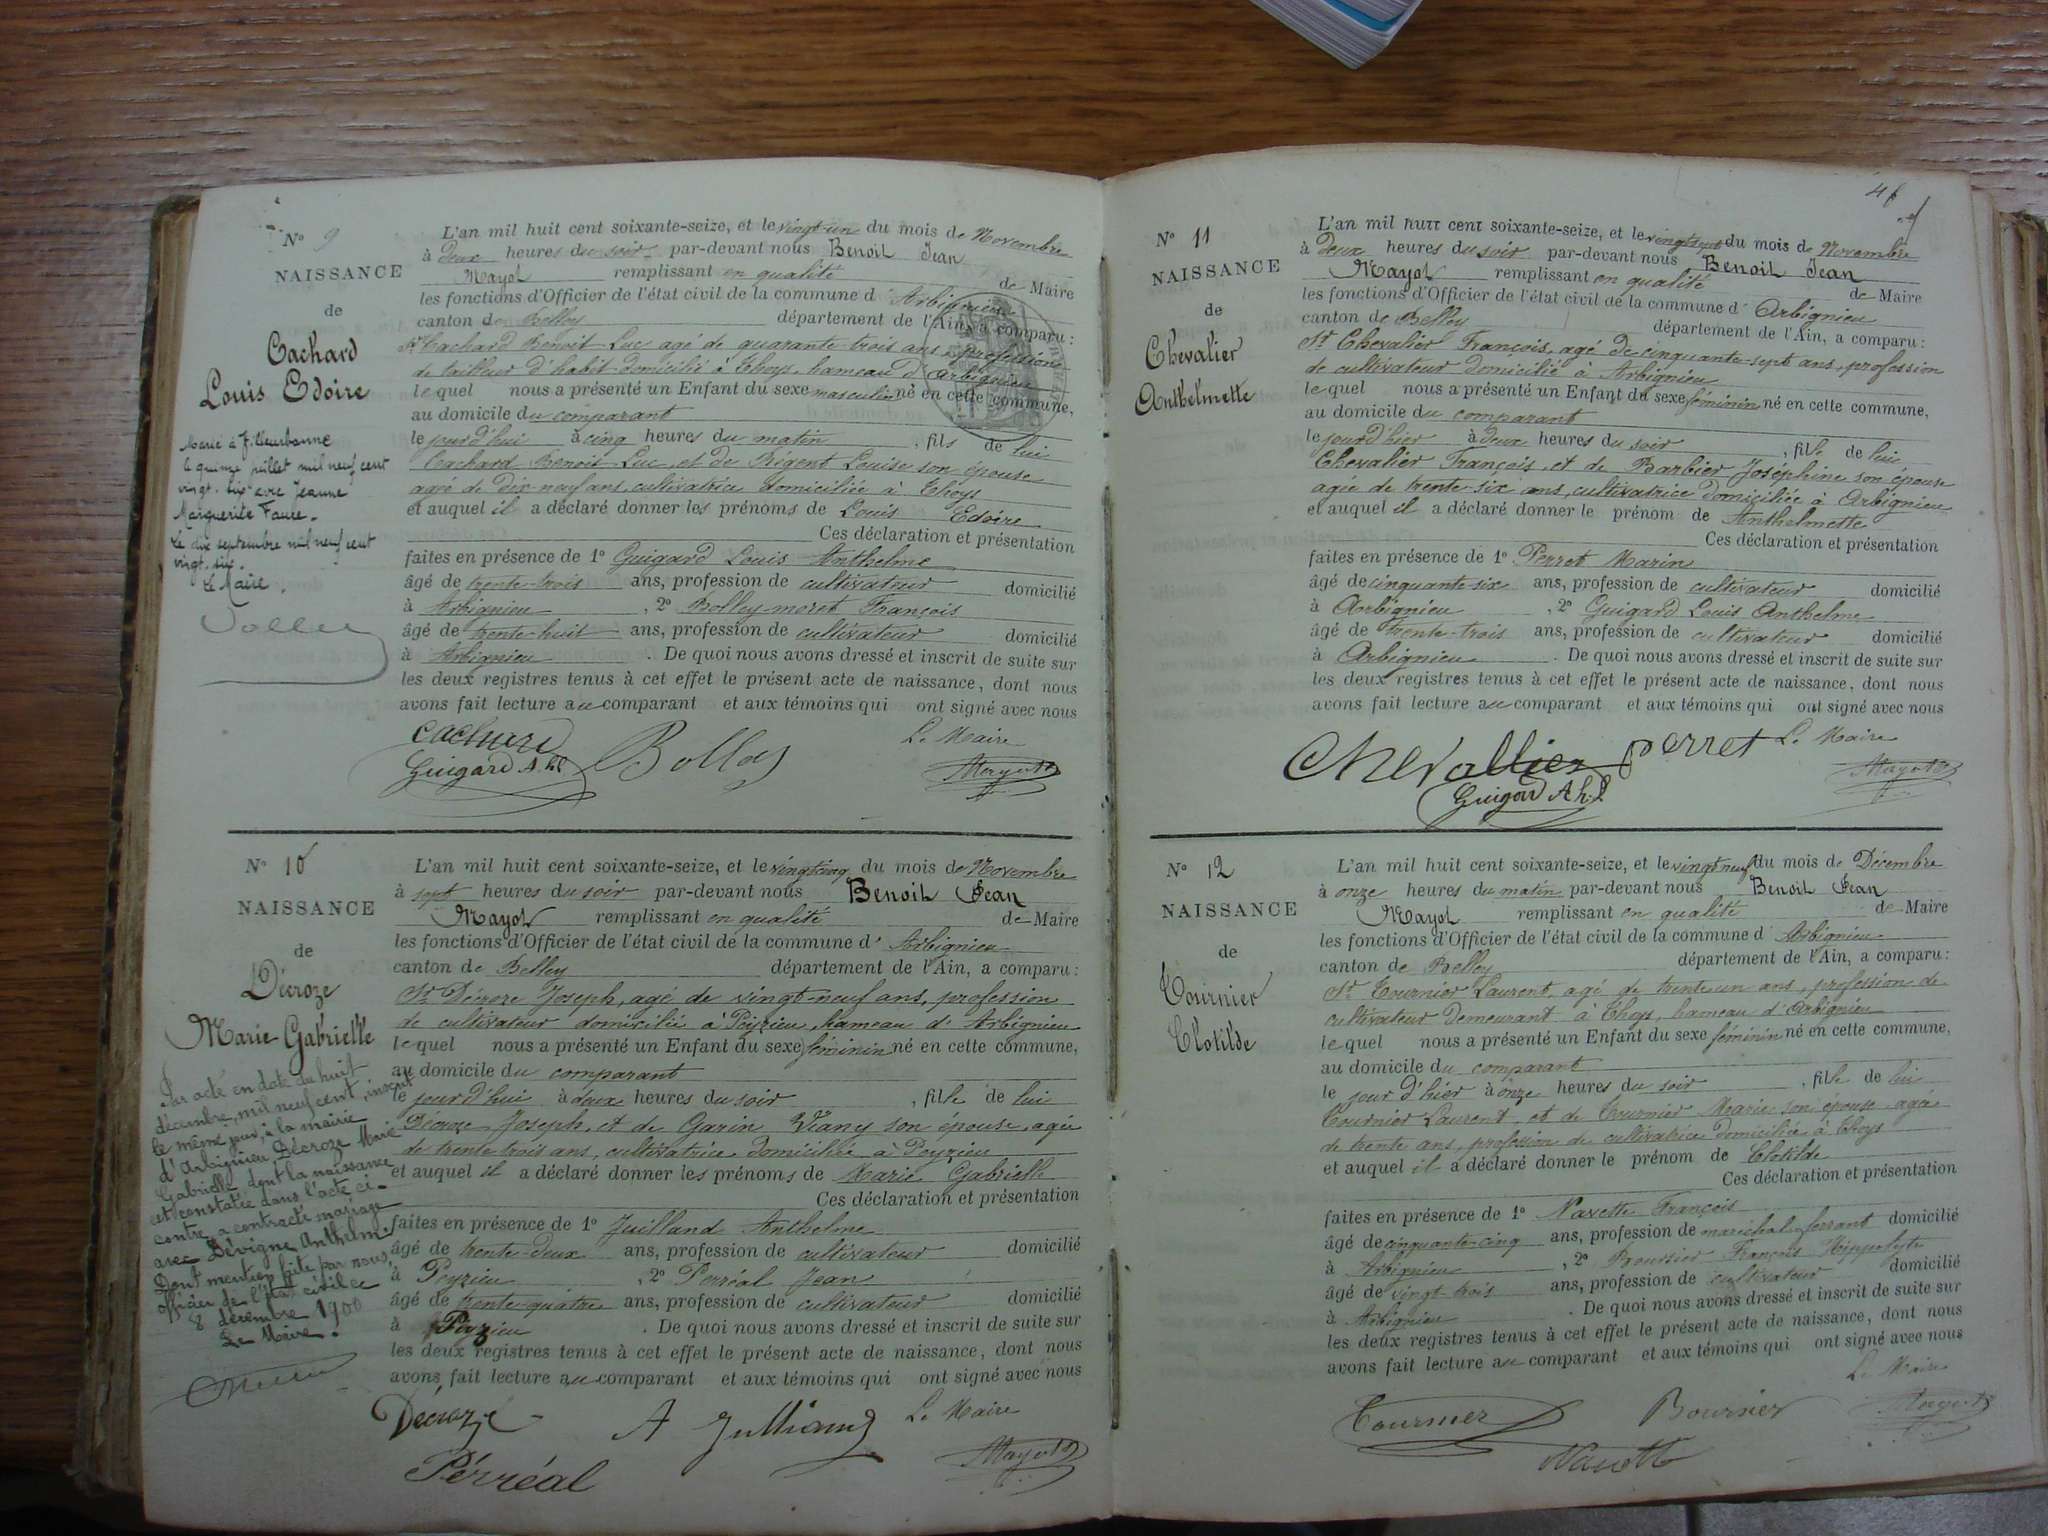 N° 9
NAISSANCE
de
Cachard
Louis Edoire
Marié à Villeurbanne
le quinze juillet mil neuf cent
vingt-six avec Jeanne
Marguerite Faure.
Le dix septembre mil neuf cent
vingt-six.
Le Maire.
L'an mil huit cent soixante-seize, et le vingt-un du mois de Novembre
à deux heures du soir par-devant nous Benoit Jean
Mayot remplissant en qualité de Maire
les fonctions d'Officier de l'état civil de la commune d'Arbignieu
canton de Belley département de l'Ain, a comparu :
Sr Cachard Benoit Luc agé de quarante-trois ans, profession
de tailleur d'habit domicilié à Thoys, hameau d'Arbignieu
lequel nous a présenté un Enfant du sexe masculin né en cette commune,
au domicile du comparant
le jourd'hui à cinq heures du matin, fils de lui
Cachard Benoit Luc et de Régent Louise son épouse
agée de dix-neuf ans, cultivatrice domiciliée à Thoys
et auquel il a déclaré donner les prénoms de Louis Edoire
Ces déclaration et présentation
faites en présence de 1° Guigard Louis Anthelme
âgé de trente-trois ans, profession de cultivateur domicilié
à Arbignieu, 2° Bolley moret François
âgé de trente-huit ans, profession de cultivateur domicilié
à Arbignieu. De quoi nous avons dressé et inscrit de suite sur
les deux registres tenus à cet effet le présent acte de naissance, dont nous
avons fait lecture au comparant et aux témoins qui ont signé avec nous
Cachard Le Maire
Guigard Bolley Mayot
N° 10
NAISSANCE
de
Décroze
Marie Gabrielle
Par acte en date du huit
décembre, mil neuf cent, inscrit
le même jour, à la mairie
d'Arbignieu Décroze Marie
Gabrielle dont la naissance
est constatée dans l'acte ci-
contre a contracté mariage
avec Dévigne Anthelme
Dont mention faite par nous,
officier de l'état civil le
8 décembre 1900
Le Maire.
L'an mil huit cent soixante-seize, et le vingt cinq du mois de Novembre
à sept heures du soir par-devant nous Benoit Jean
Mayot remplissant en qualité de Maire
les fonctions d'Officier de l'état civil de la commune d'Arbignieu
canton de Belley département de l'Ain, a comparu :
Sr Décroze Joseph, agé de vingt-neuf ans, profession
de cultivateur domicilié à Peyzieu, hameau d'Arbignieu
lequel nous a présenté un Enfant du sexe féminin né en cette commune,
au domicile du comparant
le jourd'hui à deux heures du soir, fille de lui
Décroze Joseph, et de Garin Viany son épouse, agée
de trente trois ans, cultivatrice domiciliée à Peyzieu
et auquel il a déclaré donner les prénoms de Marie Gabrielle
Ces déclaration et présentation
faites en présence de 1° Juilland Anthelme
âgé de trente-deux ans, profession de cultivateur domicilié
à Peyzieu, 2° Perréal Jean
âgé de trente-quatre ans, profession de cultivateur domicilié
à Peyzieu. De quoi nous avons dressé et inscrit de suite sur
les deux registres tenus à cet effet le présent acte de naissance, dont nous
avons fait lecture au comparant et aux témoins qui ont signé avec nous
Décroze A Le Maire
Pérréal Mayot
N° 11
NAISSANCE
de
Chevalier
Anthelmette
L'an mil huit cent soixante-seize, et le vingtsept du mois de Novembre
à deux heures du soir par-devant nous Benoit Jean
Mayot remplissant en qualité de Maire
les fonctions d'Officier de l'état civil de la commune d'Arbignieu
canton de Belley département de l'Ain, a comparu :
Sr Chevalier François, agé de cinquante-sept ans, profession
de cultivateur domicilié à Arbignieu
lequel nous a présenté un Enfant du sexe féminin né en cette commune,
au domicile du comparant
le jourd'hier à deux heures du soir, fille de lui
Chevalier François, et de Barbier Joséphine son épouse
agée de trente-six ans, cultivatrice domiciliée à Arbignieu
et auquel il a déclaré donner le prénom de Anthelmette
Ces déclaration et présentation
faites en présence de 1° Perret Marin
âgé de cinquante-six ans, profession de cultivateur domicilié
à Arbignieu, 2° Guigard Louis Anthelme
âgé de trente-trois ans, profession de cultivateur domicilié
à Arbignieu. De quoi nous avons dressé et inscrit de suite sur
les deux registres tenus à cet effet le présent acte de naissance, dont nous
avons fait lecture au comparant et aux témoins qui ont signé avec nous
Chevallier perret Le Maire
Guigard Mayot
N° 12
NAISSANCE
de
Tournier
Clotilde
L'an mil huit cent soixante-seize, et le vingt neuf du mois de Décembre
à onze heures du matin par-devant nous Benoit Jean
Mayot remplissant en qualité de Maire
les fonctions d'Officier de l'état civil de la commune d'Arbignieu
canton de Belley département de l'Ain, a comparu :
Sr Tournier Laurent, agé de trente un ans, profession de
cultivateur demeurant à Thoys, hameau d'Arbignieu
lequel nous a présenté un Enfant du sexe féminin né en cette commune,
au domicile du comparant
le jour d'hier à onze heures du soir, fille de lui
Tournier Laurent, et de Tournier Marie son épouse agée
de trente ans, profession de cultivatrice domiciliée à Thoys
et auquel il a déclaré donner le prénom de Clotilde
Ces déclaration et présentation
faites en présence de 1° Navette François
âgé de cinquante-cinq ans, profession de maréchal-ferrant domicilié
à Arbignieu, 2° François Hippolyte
âgé de vingt-trois ans, profession de cultivateur domicilié
à Arbignieu. De quoi nous avons dressé et inscrit de suite sur
les deux registres tenus à cet effet le présent acte de naissance, dont nous
avons fait lecture au comparant et aux témoins qui ont signé avec nous
Le Maire
Tournier Mayot